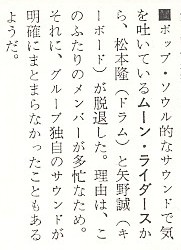 ■ポップ・ソウル的なサウンドで気
を吐いているムーン・ライダースか
ら、松本隆（ドラム）と矢野誠（キ
ーボード）が脱退した。理由は、こ
のふたりのメンバーが多忙なため。
それに、グループ独自のサウンドが
明確にまとまらなかったこともある
ようだ。